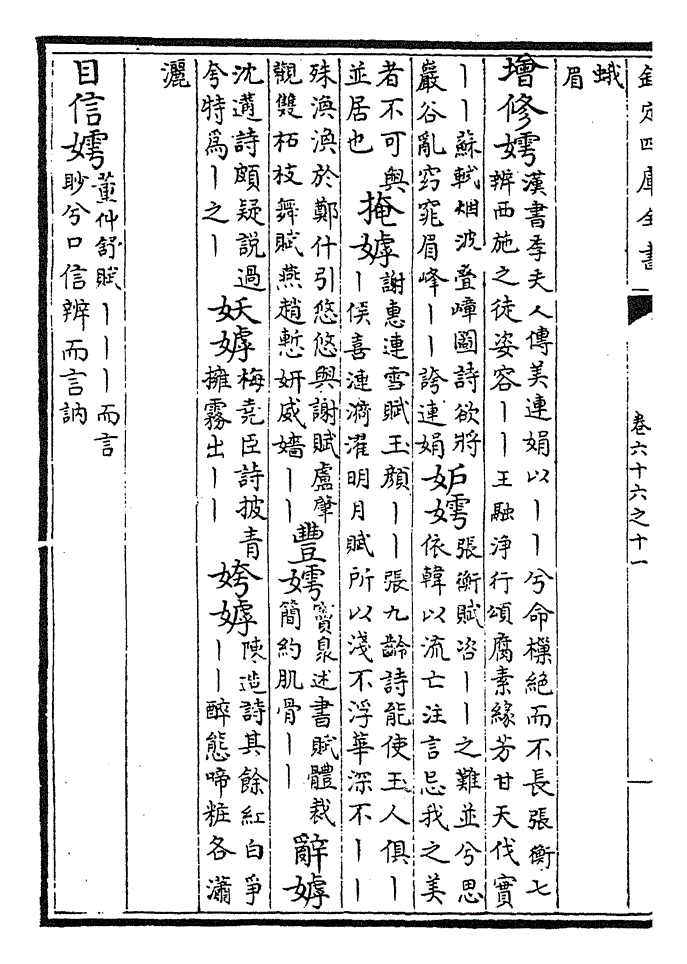 欽定四庫全書
卷六十六之十一
蛾
眉
增修嫮
漢書李夫人傳美連娟以丨丨兮命樔絕而不長張衡七
辨西施之徒姿容丨丨王融浄行頌腐素緣芳甘天伐實
丨丨蘇軾烟波疊嶂圖詩欲將
巖谷亂窈窕眉峰丨丨誇連娟
妒嫮
張衡賦咨丨丨之難並兮思
依韓以流亡注言忌我之美
者不可與
並居也
掩嫭
謝惠連雪賦玉顏丨丨張九齡詩能使玉人俱丨
丨俟喜漣漪濯明月賦所以淺不浮華深不丨丨
殊渙渙於鄭什引悠悠與謝賦盧肇
觀雙柘枝舞賦燕趙慙妍威嬙丨丨
豐嫮
竇臮述書賦體裁
簡約肌骨丨丨
辭嫭
沈遘詩頗疑説過
兮特爲丨之丨
妖嫭
梅堯臣詩披青
擁霧出丨丨
姱嫭
陳造詩其餘紅白爭
丨丨醉態啼粧各瀟
灑
目信嫮
董仲舒賦丨丨丨而言
眇兮口信辨而言訥